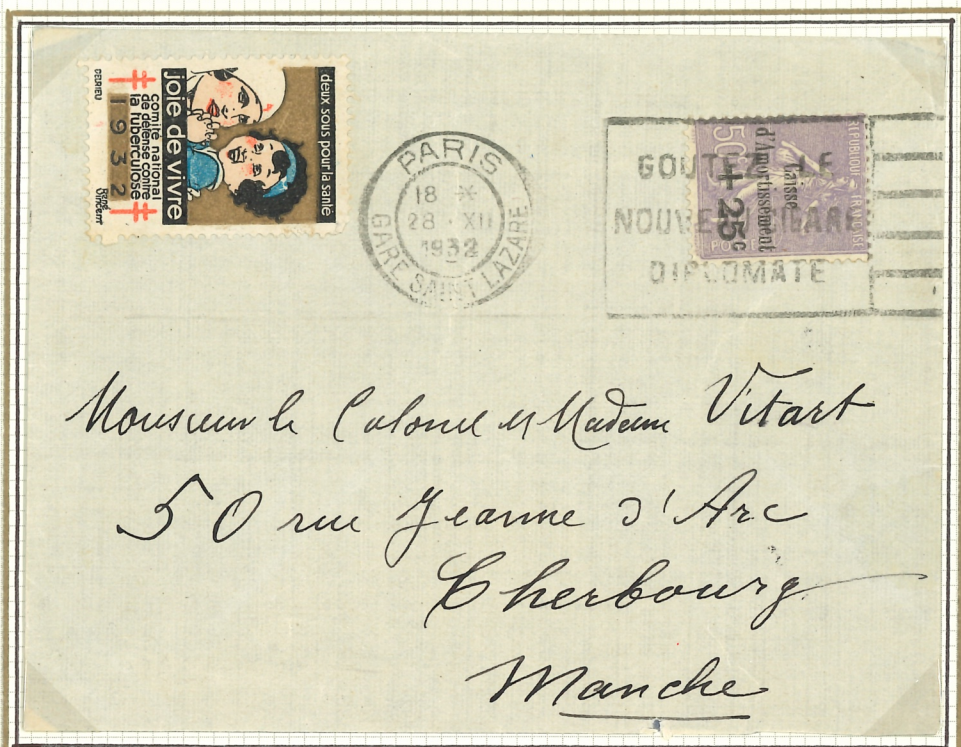 deux sous pour la santé
joie de vivre
comité national
de défense contre
la tuberculose
1932
DELRIEU
René
Vincent
PARIS
18 X
28 · XII
1932
GARE SAINT LAZARE
GOUTEZ LE
NOUVEAU CIGARE
DIPLOMATE
REPUBLIQUE FRANÇAISE
50c
POSTES
Caisse
d'Amortissement
+ 25c
Monsieur le Colonel et Madame Vitart
50 rue Jeanne d'Arc
Cherbourg
Manche